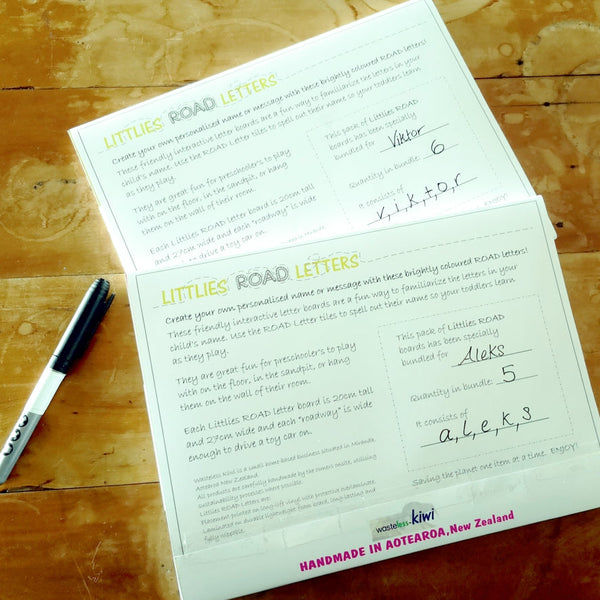 LITTLIES ROAD LETTERS
Create your own personalised name or message with these brightly coloured ROAD letters!
These friendly interactive letter boards are a fun way to familiarize the letters in your
child's name. Use the ROAD Letter tiles to spell out their name so your toddlers learn
as they play.
They are great fun for preschooler's to play
with on the floor, in the sandpit, or hang
them on the wall of their room.
Each Littlies ROAD letter board is 20cm tall
and 27cm wide and each "roadway" is wide
to drive a toy car on.
This pack of Littlies ROAD
boards has been specially
bundled for Viktor
Quantity in bundle: 6
It consists of
v, i, k, t, o, r
ENJOY!
LITTLIES ROAD LETTERS
Create your own personalised name or message with these brightly coloured ROAD letters!
These friendly interactive letter boards are a fun way to familiarize the letters in your
child's name. Use the ROAD Letter tiles to spell out their name so your toddlers learn
as they play.
They are great fun for preschooler's to play
with on the floor, in the sandpit, or hang
them on the wall of their room.
Each Littlies ROAD letter board is 20cm tall
and 27cm wide and each "roadway" is wide
enough to drive a toy car on.
This pack of Littlies ROAD
boards has been specially
bundled for Aleks
Quantity in bundle: 5
It consists of
a, l, e, k, s
Wasteless Kiwi is a small home based business situated in
Aotearoa New Zealand.
All products are carefully handmade by the owners onsite, utilising
sustainability processes where possible.
Littlies ROAD Letters are:
Placement printed on long-life vinyl with protective overlaminate.
Laminated on durable lightweight foam board, long-lasting and
fully wipeable.
Saving the planet one item at a time. ENJOY!
wasteless-kiwi
HANDMADE IN AOTEAROA, New Zealand